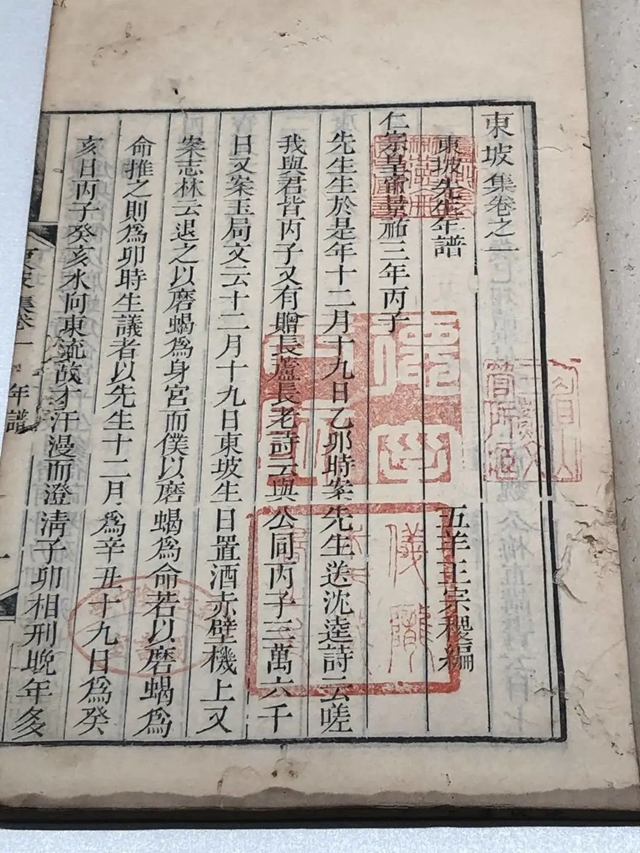 東坡集卷之一
東坡先生年譜
五羊王宗稷編
仁宗皇帝景祐三年丙子
先生生於是年十二月十九日乙卯時案先生送沈逵詩云嗟
我與君皆丙子又有贈長蘆長老詩云與公同丙子三萬六千
日又案玉局文云十二月十九日東坡生日置酒赤壁機上又
案志林云退之以磨蝎為身宮而僕以磨蝎為命若以磨蝎為
命推之則為卯時生議者以先生十二月為辛丑十九日為癸
亥日丙子癸亥水向東流故才汗漫而澄清子卯相刑晚年多
年譜